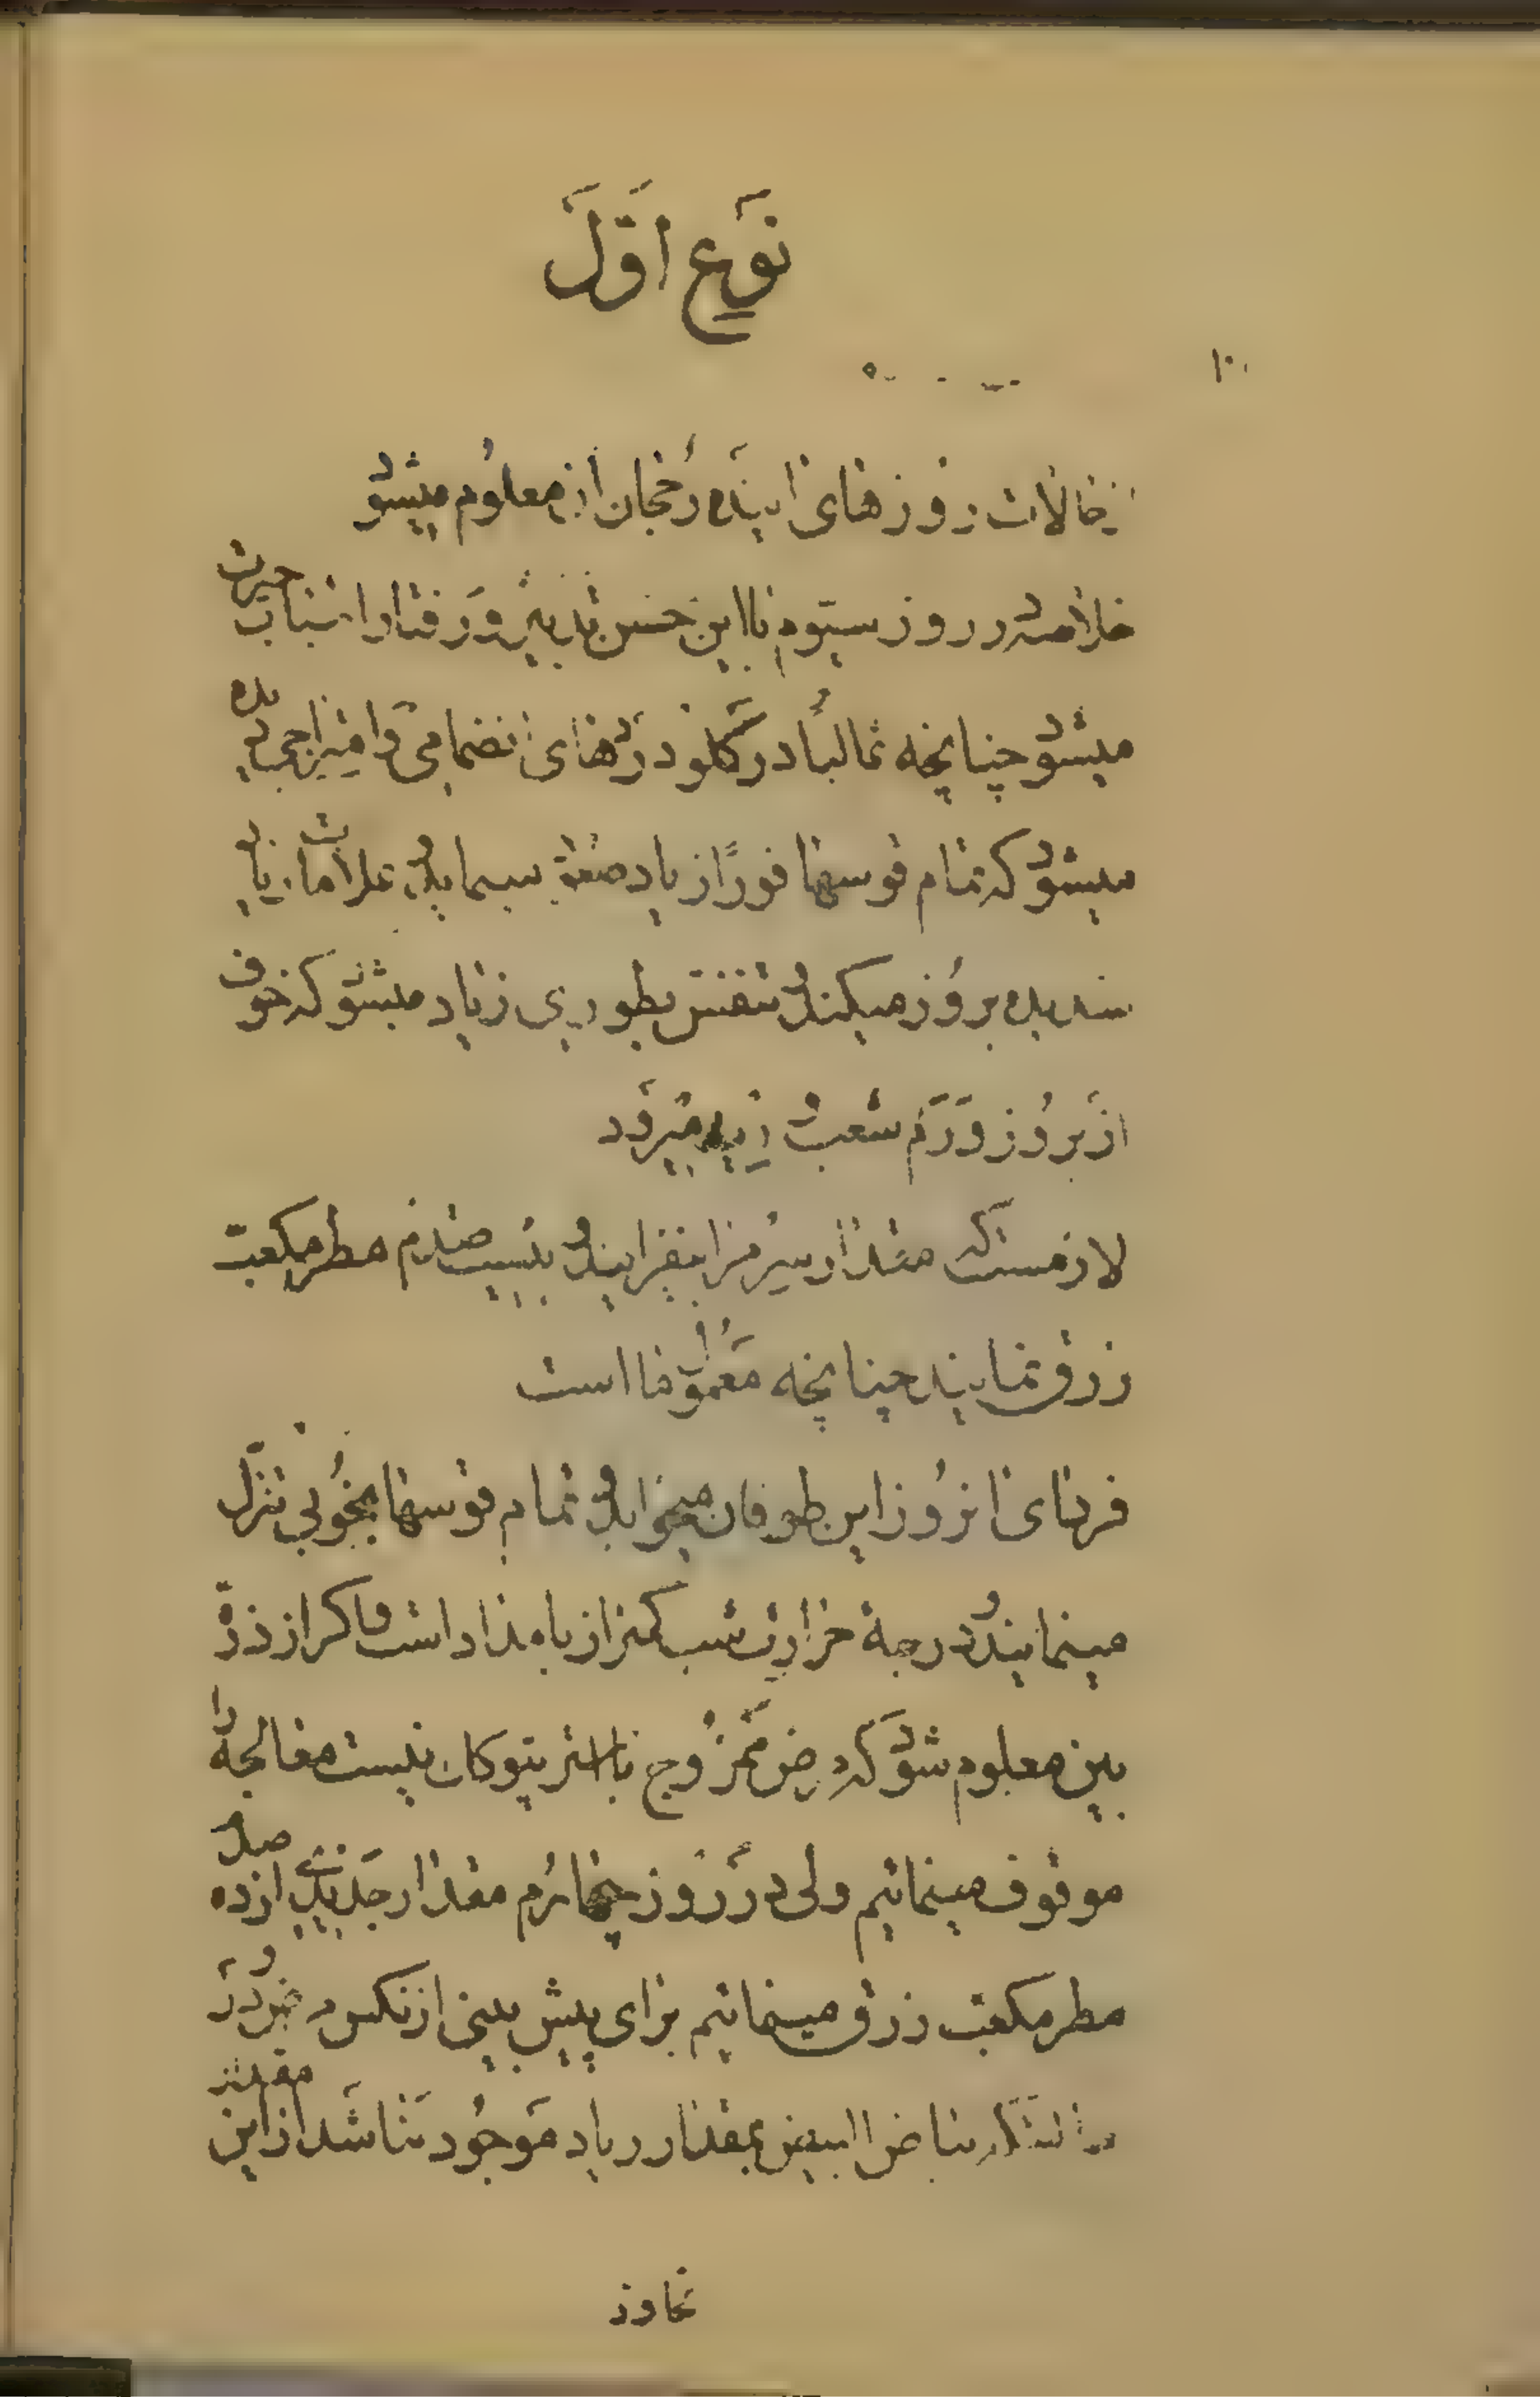 نوع اول
حالات روزهای آینده رجحان از معلوم میشود
خلاصه در روز سیوم با این حسن تدبیر و رفتار اسباب حیرت
میشود چنانچه غالبا در گلودردهای انضمامی و امتزاجی دیده
میشود که تمام قوسها فورا زیاد صعود مینماید و علامات زیاد
شدیده بروز میکند و تنفس بطوری زیاد میشود که خوف
از بروز ورم شعب ریه میرود
لازمست که مقدار سیرم را بیفزایند و بیست صدم مطر مکعب
زرق نمایند چنانچه معمول ما است
فردای انروز این طوفان میخوابد و تمام قوسها بخوبی تنزل
مینمایند و درجه حرارت شب کمتر از بامداد است و اگر از ذره
بین معلوم شود که مرض ممزوج با استرپتوکان نیست معالجه را
موقوف مینمائیم ولی در روز چهارم مقدار جدیدی از ده صدم
مطر مکعب زرق مینمائیم برای پیش بینی از نکس مرض و در
بیاض البیض بمقدار زیاد موجود نباشد از این مقدار